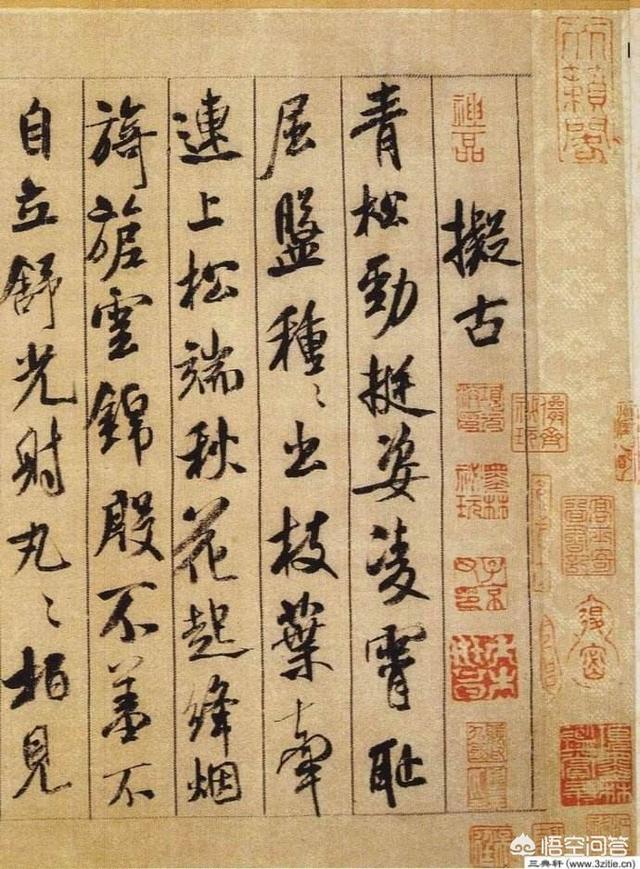 天籟閣
神品
擬古
青松勁挺姿凌霄恥
屈盤種〻出枝葉牽
連上松端秋花起絳烟
旖旎雲錦殷不羞不
自立舒光射丸〻柏見
墨林祕玩
悟空问答
三典轩(www.3zitie.cn)